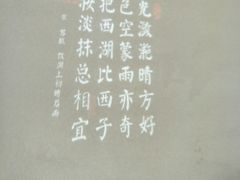 光潋滟晴方好
色空蒙雨亦奇
把西湖比西子
妆淡抹总相宜
宋 苏轼 饮湖上初晴后雨